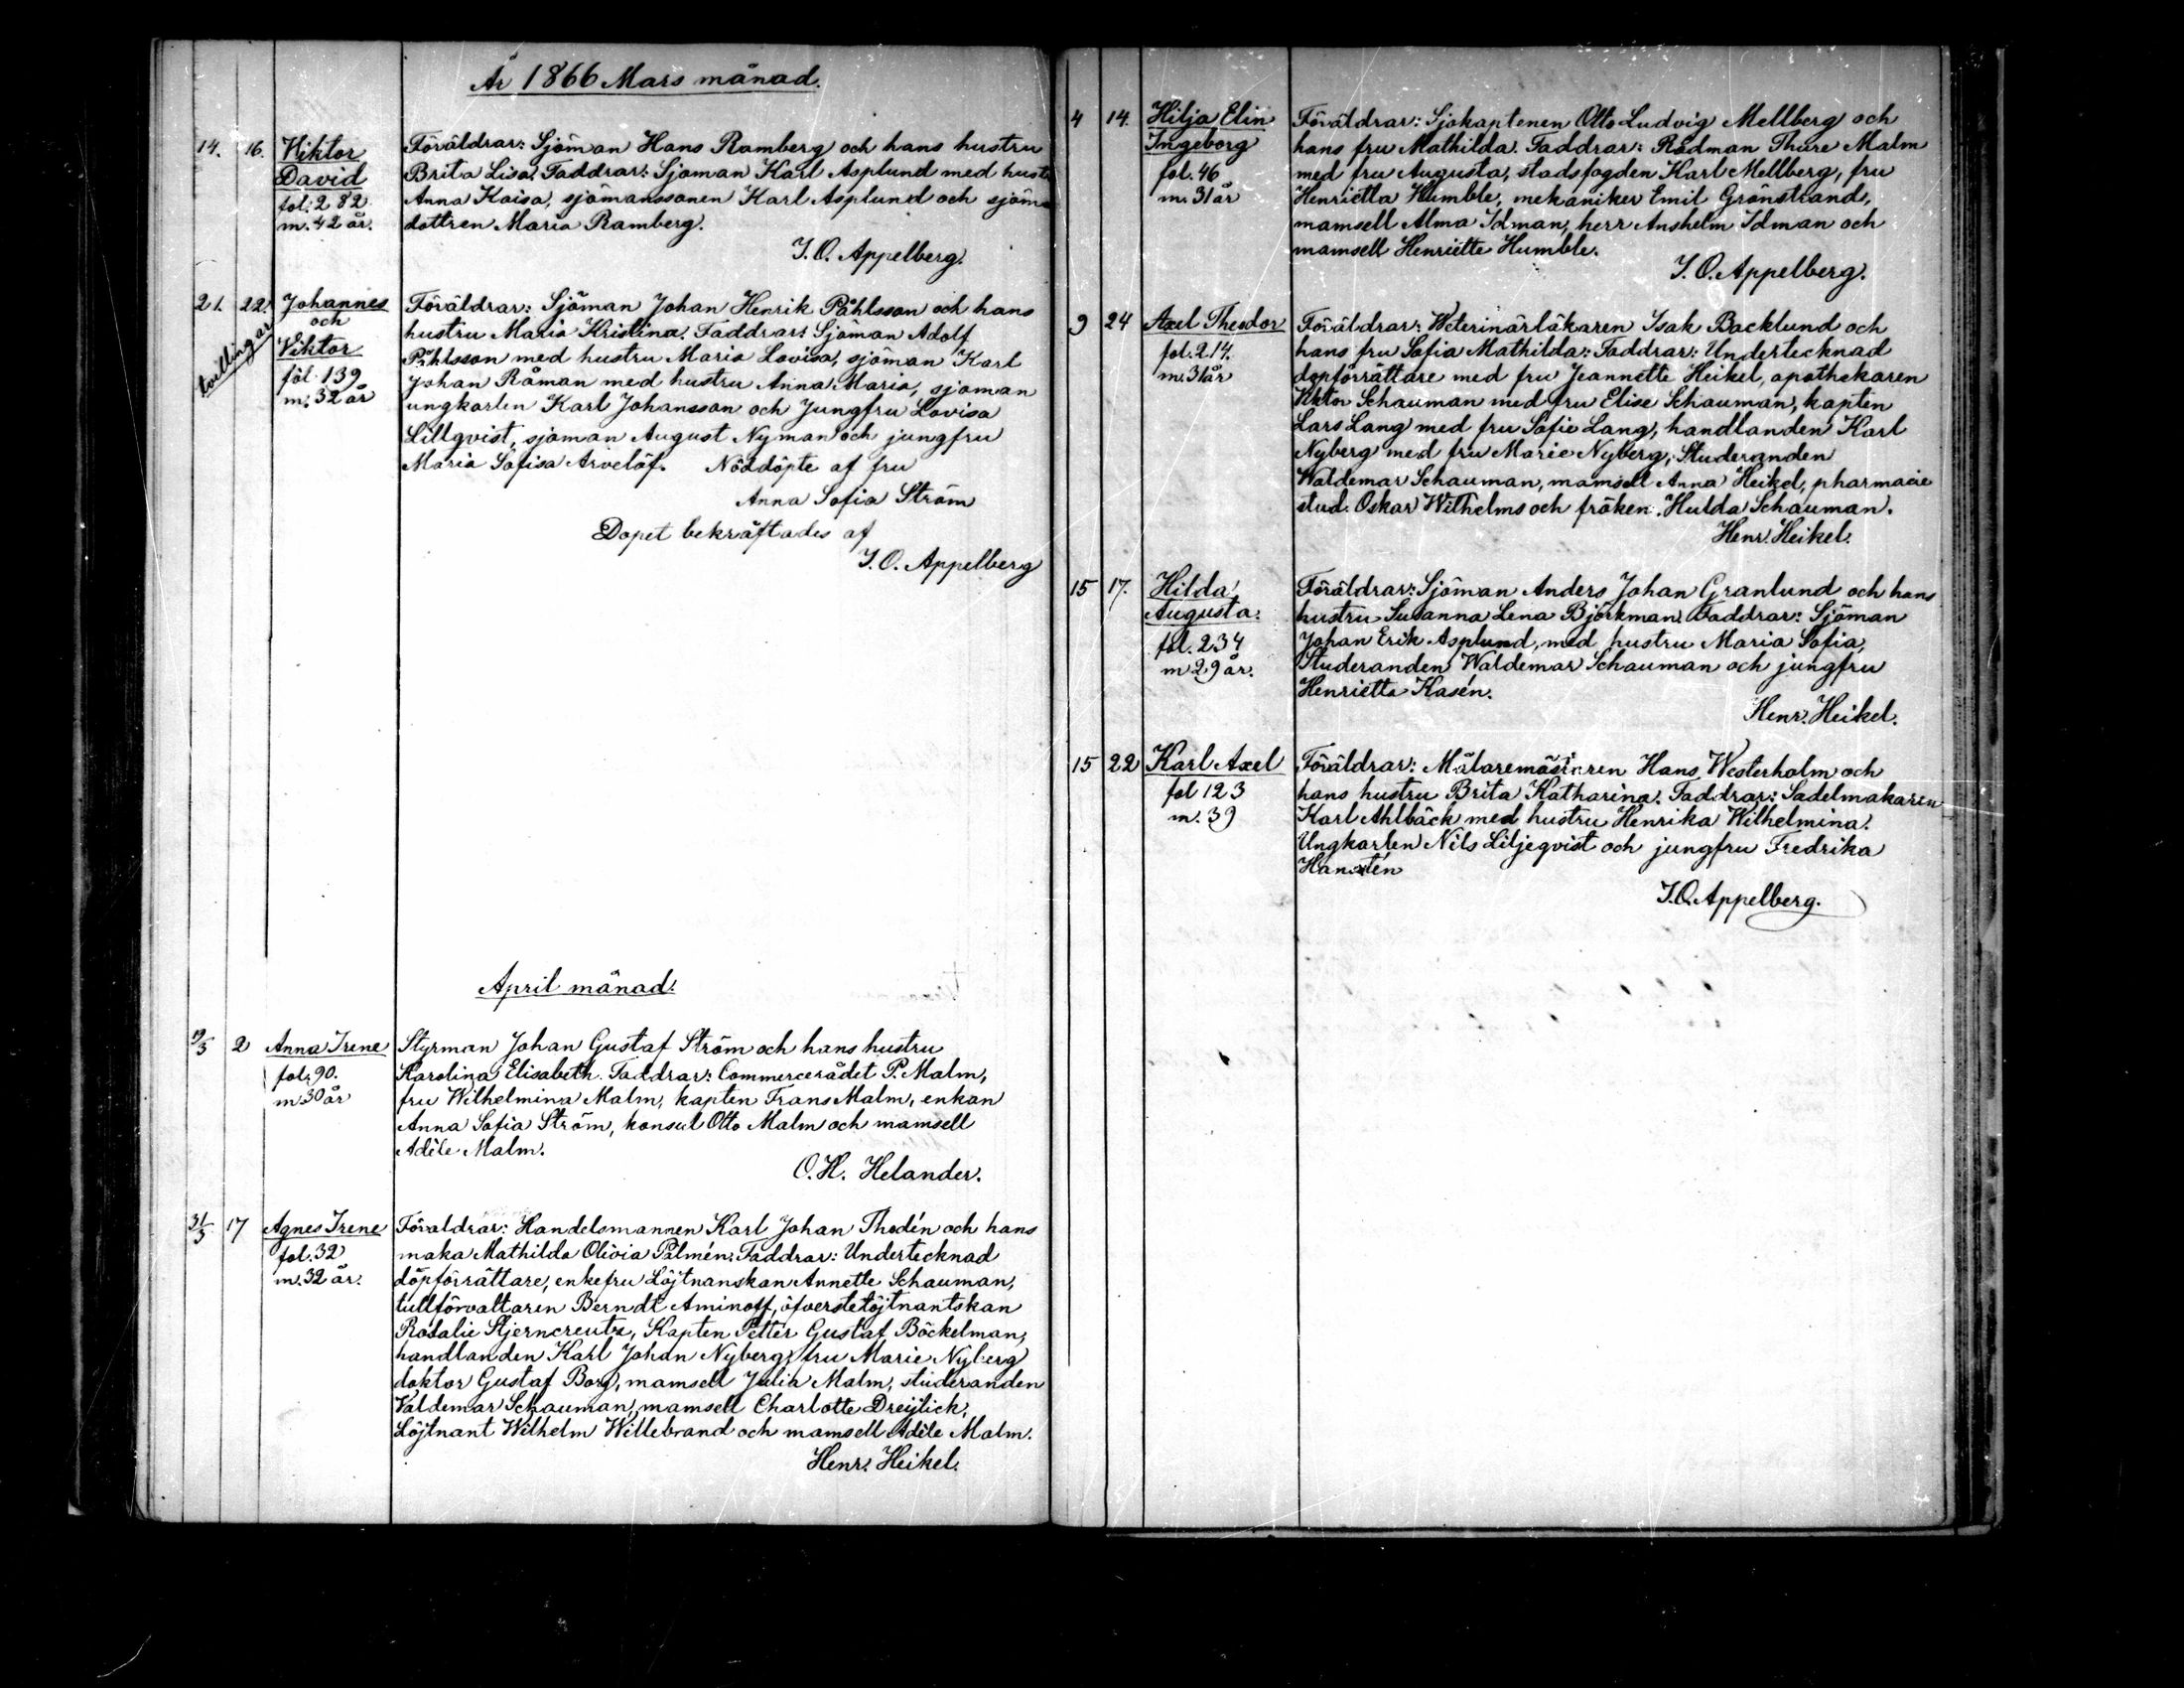 År 1866 Mars månad.
14. 16. Viktor Föräldrar: Sjöman Hans Ramberg och hans hustru
David Brita Lisa. Faddrar: Sjöman Karl Asplund med hust
fol: 282 Anna Kaisa, sjömanssonen Karl Asplund och sjöm
m. 42 år. dottren Maria Ramberg.
J. O. Appelberg.
21. 22. Johannes Föräldrar: Sjöman Johan Henrik Påhlsson och hans
tvillingar
och hustru Maria Kristina. Faddrar: Sjöman Adolf
Viktor Påhlsson med hustru Maria Lovisa, sjöman Karl
föl. 139 Johan Råman med hustru Anna Maria, sjöman
m: 32 år ungkarlen Karl Johansson och Jungfru Lovisa
Lillqvist, sjöman August Nyman och jungfru
Maria Sofisa Arvelöf. Nöddöpte af fru
Anna Sofia Ström
Dopet bekräftades af
J. O. Appelberg
April månad.
19/3 2 Anna Irene Styrman Johan Gustaf Ström och hans hustru
fol. 90. Karolina Elisabeth. Faddrar: Commercerådet P. Malm,
m 30 år fru Wilhelmina Malm, kapten Frans Malm, enkan
Anna Sofia Ström, konsul Otto Malm och mamsell
Adèle Malm.
O. H. Helander.
31/3 17 Agnes Irene Föraldrar: Handelsmannen Karl Johan Thodén och hans
fol. 32 maka Mathilda Olivia Palmén. Faddrar: Undertecknad
m. 32 år. döpförrättare, enkefru Löjtnanskan Annette Schauman,
tullförvaltaren Berndt Aminoff, öfverstelöjtnantskan
Rosalie Stjerncreutz, Kapten Petter Gustaf Böckelman,
handlanden Karl Johan Nyberg, fru Marie Nyberg
doktor Gustaf Borg, mamsell Julia Malm, studeranden
Valdemar Schauman, mamsell Charlotte Dreijlick,
Löjtnant Wilhelm Willebrand och mamsell Adèle Malm.
Henr. Heikel.
4 14. Hilja Elin Föräldrar: Sjökaptenen Otto Ludvig Mellberg och
Ingeborg hans fru Mathilda. Faddrar: Rådman Thure Malm
fol. 46 med fru Augusta, stadsfogden Karl Mellberg, fru
m. 31 år Henrietta Humble, mekaniker Emil Grönstrand,
mamsell Alma Idman, herr Anshelm Idman och
mamsell Henriette Humble.
J. O. Appelberg.
9 24 Axel Theodor Föräldrar: Weterinärläkaren Isak Backlund och
fol: 214. hans fru Sofia Mathilda: Faddrar: Undertecknad
m: 31 år dopförrättare med fru Jeannette Heikel, apothekaren
Viktor Schauman med fru Elise Schauman, kapten
Lars Lang med fru Sofie Lang, handlanden Karl
Nyberg med fru Marie Nyberg, Studeranden
Waldemar Schauman, mamsell Anna Heikel, pharmacie
stud. Oskar Wilhelms och fröken Hulda Schauman.
Henr. Heikel.
15 17. Hilda Föräldrar: Sjöman Anders Johan Granlund och hans
Augusta. hustru Susanna Lena Björkman. Faddrar: Sjöman
fol. 234 Johan Erik Asplund, med hustru Maria Sofia,
m 29 år. Studeranden Waldemar Schauman och jungfru
Henrietta Kasén.
Henr. Heikel.
15 22 Karl Axel Föräldrar: Målaremästaren Hans Westerholm och
fol 123 hans hustru Brita Katharina. Faddrar: Sadelmakaren
m. 39 Karl Ahlbäck med hustru Henrika Wilhelmina.
Ungkarlen Nils Liljeqvist och jungfru Fredrika
Hanstén
J. O. Appelberg.